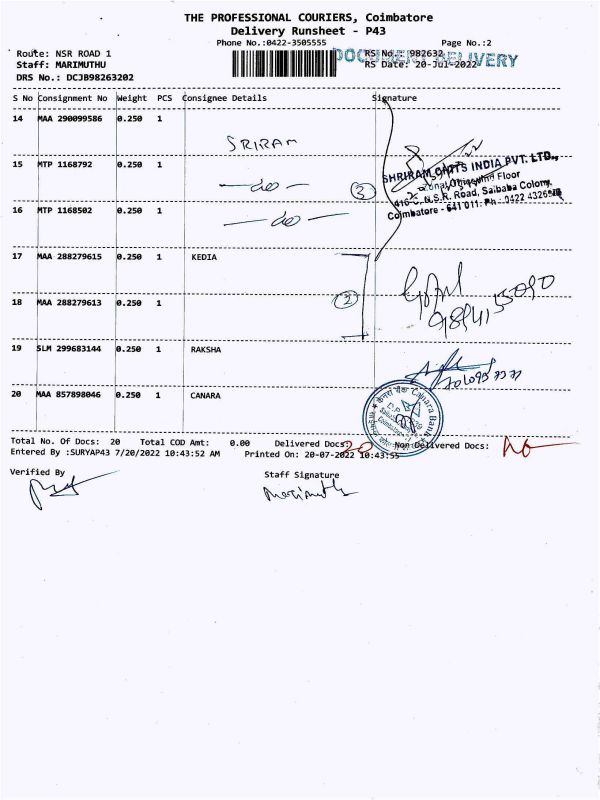 THE PROFESSIONAL COURIERS, Coimbatore
Delivery Runsheet - P43
Phone No.:0422-3505555 Page No.:2
Route: NSR ROAD 1 RS No.: 982632
DOCUMENT DELIVERY
Staff: MARIMUTHU RS Date: 20-Jul-2022
DRS No.: DCJB98263202
S No Consignment No Weight PCS Consignee Details Signature
14 MAA 290099586 0.250 1
SRIRAM
15 MTP 1168792 0.250 1
SHRIRAM CHITS INDIA PVT. LTD.,
-do- 2 Floor
416-C, N.S.R. Road, Saibaba Colony,
16 MTP 1168502 0.250 1
Coimbatore - 641 011. Ph : 0422 43265
-do-
17 MAA 288279615 0.250 1 KEDIA
18 MAA 288279613 0.250 1
2
19 SLM 299683144 0.250 1 RAKSHA
20 MAA 857898046 0.250 1 CANARA
केनरा बैंक Canara Bank
Total No. Of Docs: 20 Total COD Amt: 0.00 Delivered Docs: 20 Non Delivered Docs: No
Entered By :SURYAP43 7/20/2022 10:43:52 AM Printed On: 20-07-2022 10:43:55
Verified By Staff Signature
Marimuthu